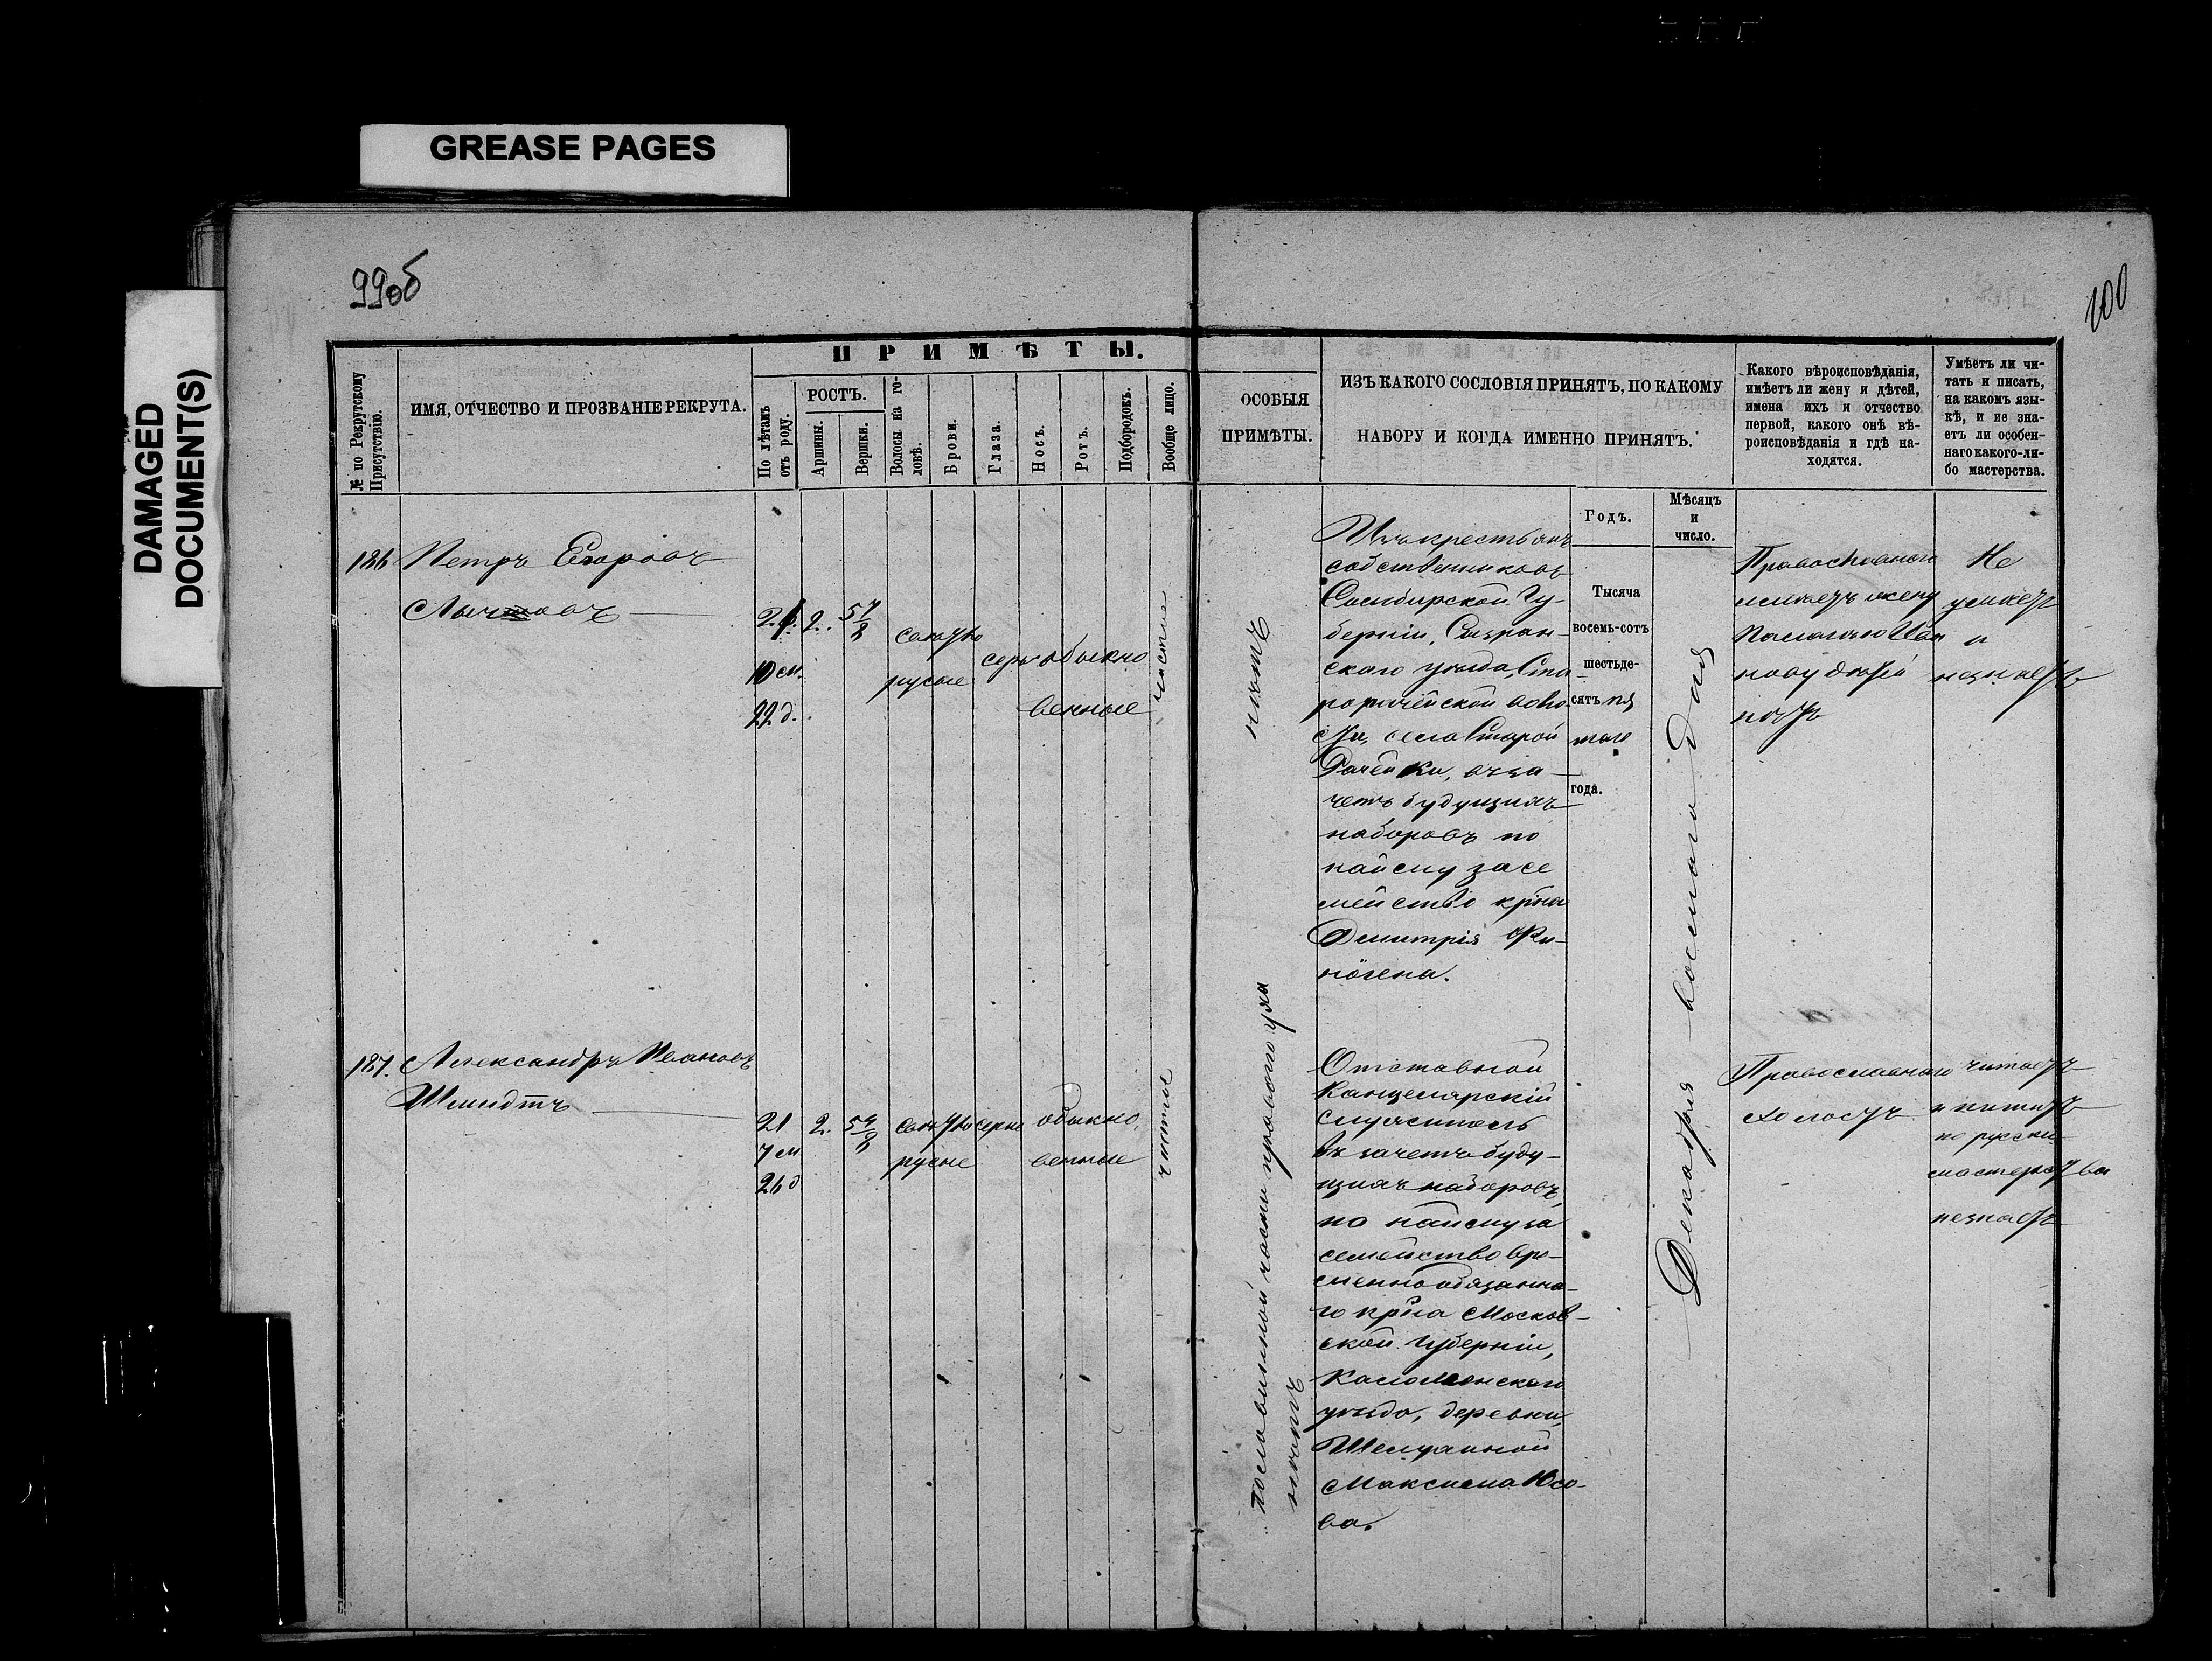 GREASE PAGES
DAMAGED
DOCUMENT(S)
99об
100
ПРИМѢТЫ.
№ по Рекрутскому
Присутствію.
ИМЯ, ОТЧЕСТВО И ПРОЗВАНІЕ РЕКРУТА.
По лѣтамъ
отъ роду.
РОСТЪ.
Аршины.
Вершки.
Волосы на го-
ловѣ.
Брови.
Глаза.
Носъ.
Ротъ.
Подбородокъ.
Вообще лицо.
ОСОБЫЯ
ПРИМѢТЫ.
ИЗЪ КАКОГО СОСЛОВІЯ ПРИНЯТЪ, ПО КАКОМУ
НАБОРУ И КОГДА ИМЕННО ПРИНЯТЪ.
Какого вѣроисповѣданія,
имѣетъ ли жену и дѣтей,
имена ихъ и отчество
первой, какого онѣ вѣ-
роисповѣданія и гдѣ на-
ходятся.
Умѣетъ ли чи-
тать и писать,
на какомъ язы-
кѣ, и не зна-
етъ ли особен-
наго какого-ли-
бо мастерства.
Годъ.
Мѣсяцъ
и
число.
186
Петръ Егоровъ
10 м.
22 д.
2.
свѣтло
русые
серые
обыкно
венные
чистое
нѣтъ
Изъ крестьянъ
собственниковъ
Симбирской Гу-
берніи, Сызран-
скаго уѣзда, Ста
рорачейской воло
сти, села Старой
Рачейки, въ за-
четъ будущихъ
наборовъ по
найму за се
мейство кр-на
Димитрія Фи-
ногена.
Тысяча
восемь-сотъ
шестьде-
сятъ пя
таго
года.
Декабря восьмаго дня
Православнаго
имеетъ жену
Иван
нову детей
нѣтъ
Не
умѣетъ
и
незнаетъ
187.
Александръ Ивановъ
Шмидтъ
21
7 м
26 д
2.
свѣтло
русые
серые
обыкно
венные
чистое
половинной части праваго уха
нѣтъ
Отставной
Канцелярскій
Служитель
въ зачетъ буду-
щихъ наборовъ,
по найму за
семейство вре-
менно обязанна-
го кр-на Москов-
ской губерніи,
Коломенскаго
уѣзда, деревни
Максима Юсо-
ва.
Православнаго
холостъ
читаетъ
и пишетъ
по русски
мастерства
незнаетъ